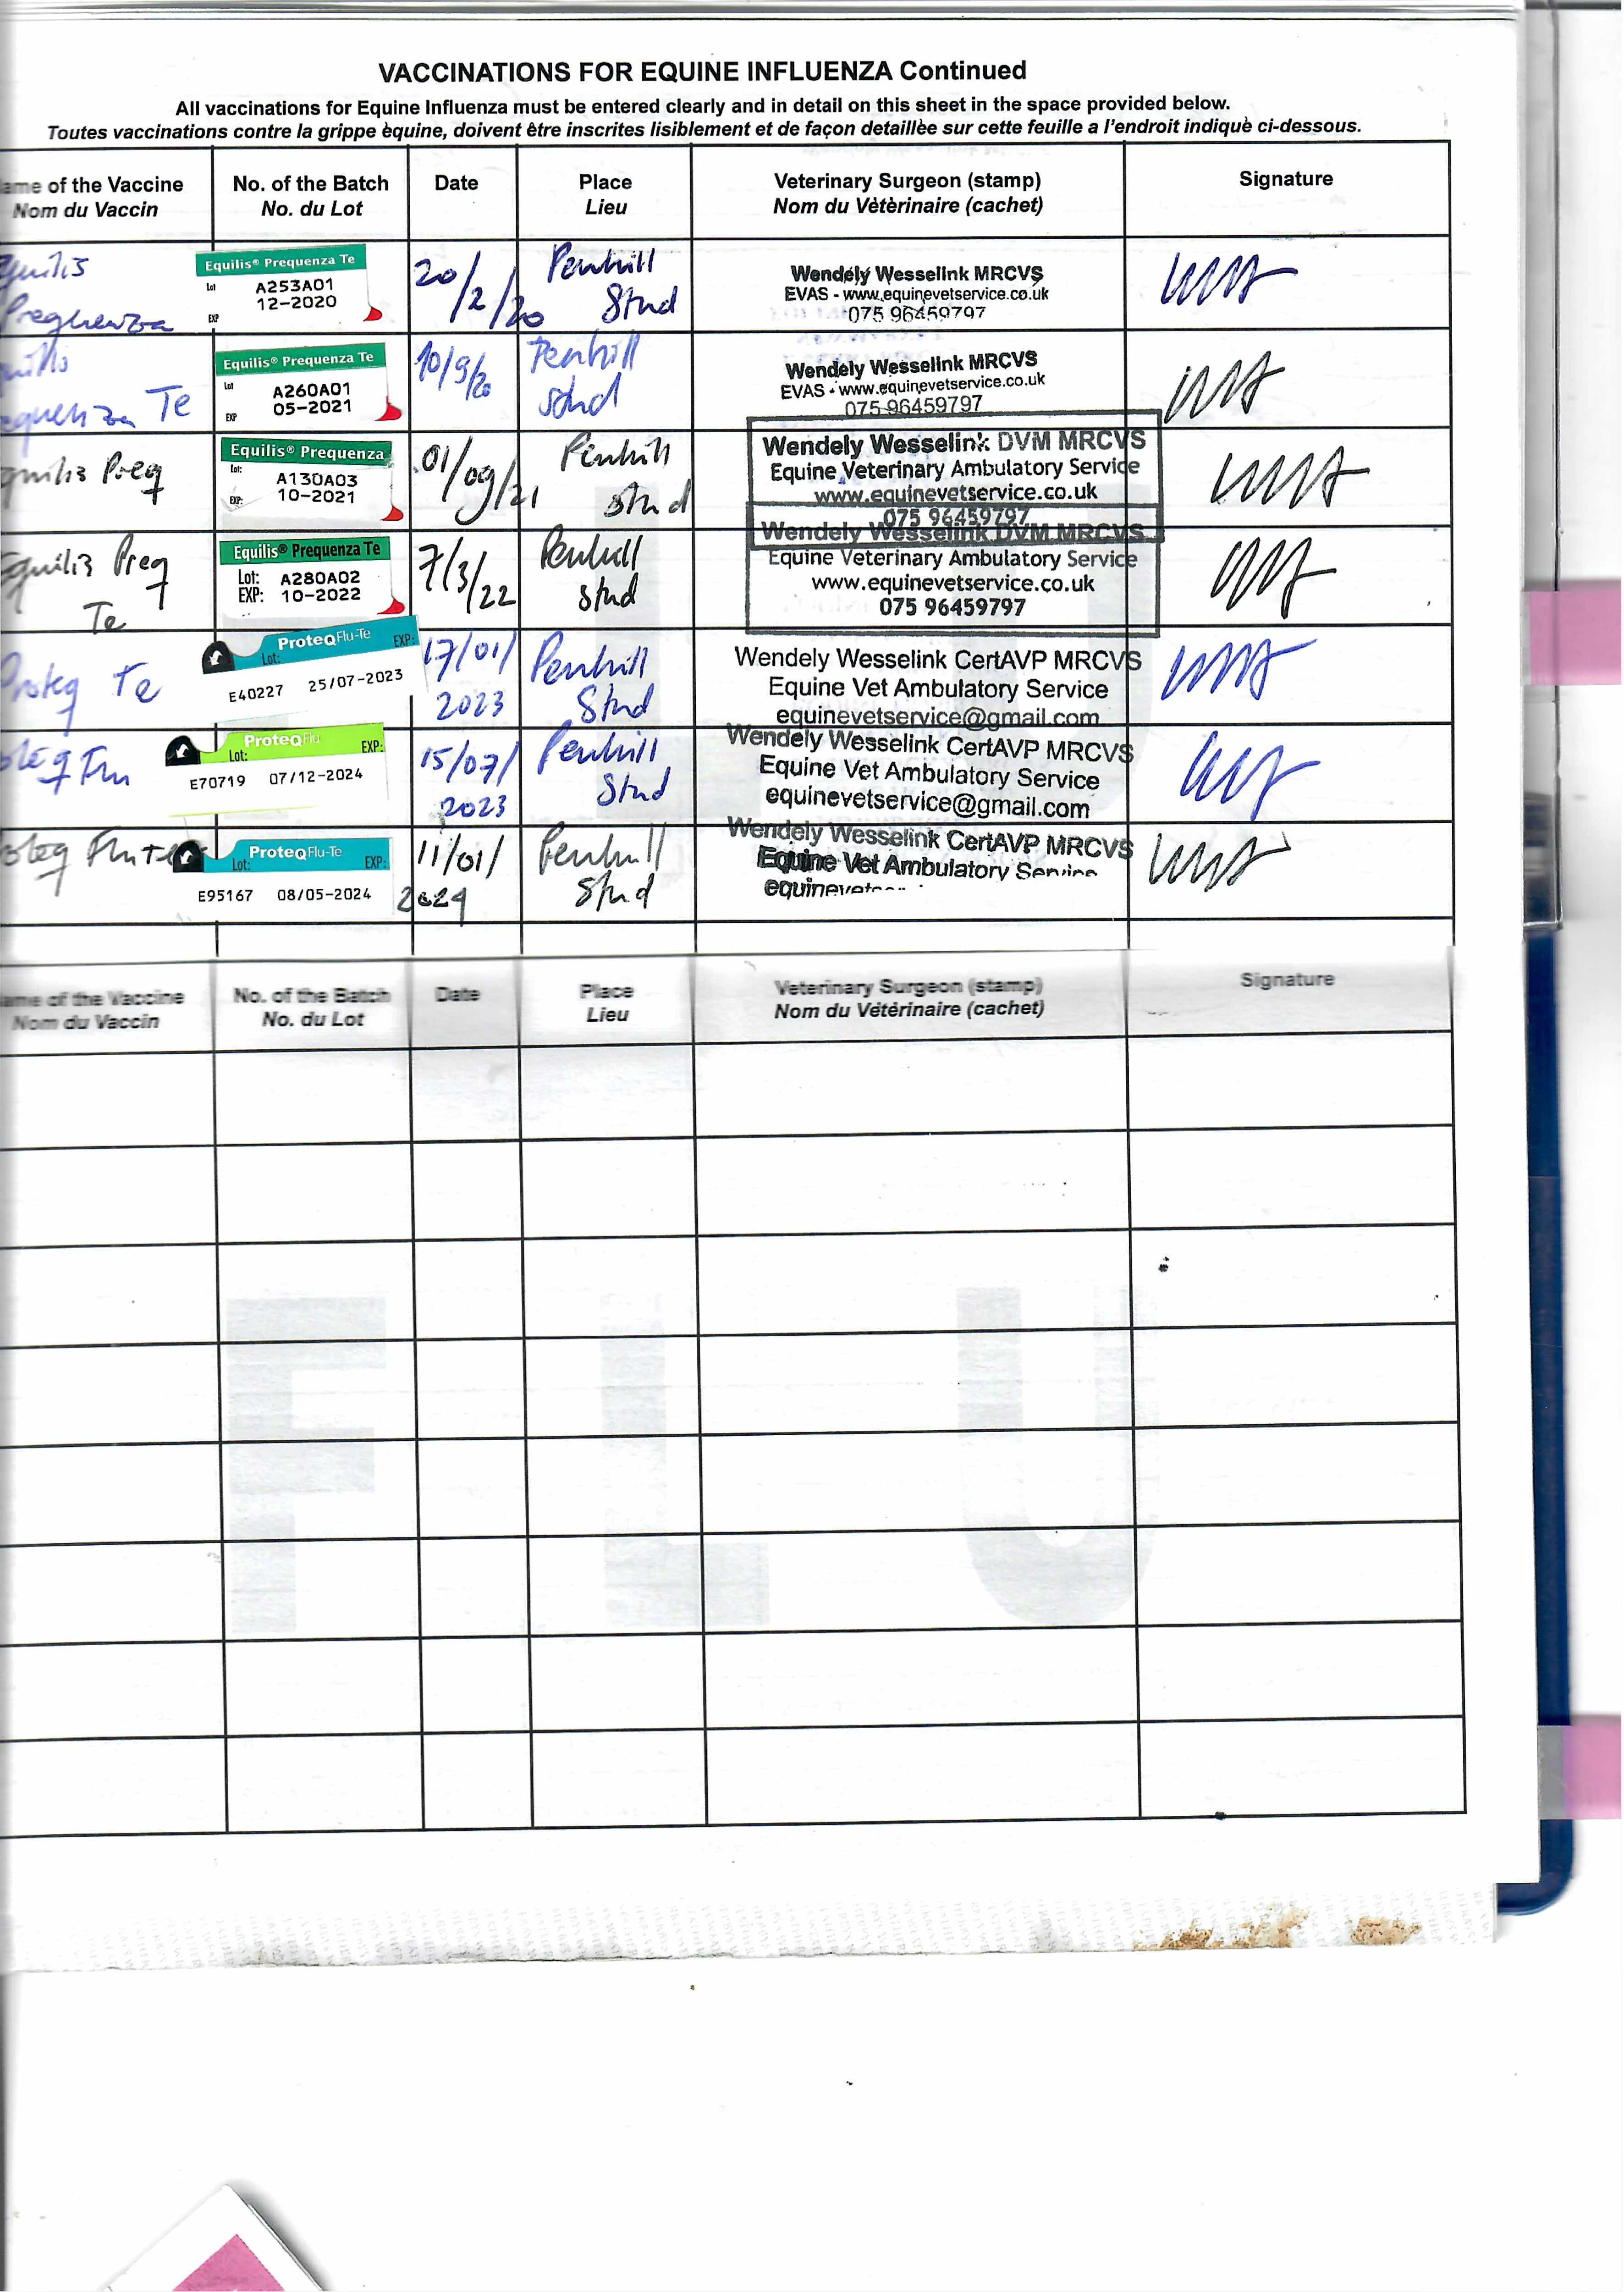 VACCINATIONS FOR EQUINE INFLUENZA Continued
All vaccinations for Equine Influenza must be entered clearly and in detail on this sheet in the space provided below.
Toutes vaccinations contre la grippe èquine, doivent être inscrites lisiblement et de façon detaillèe sur cette feuille a l'endroit indiquè ci-dessous.
ame of the Vaccine No. of the Batch Date Place Veterinary Surgeon (stamp) Signature
Nom du Vaccin No. du Lot Lieu Nom du Vètèrinaire (cachet)
quilis Equilis® Prequenza Te 20/2/20 Penhill Wendely Wesselink MRCVS
Lot A253A01 Stud EVAS - www.equinevetservice.co.uk
EXP 12-2020 075 96459797
Equilis® Prequenza Te 10/9/20 Penhill Wendely Wesselink MRCVS
equenza Te Lot A260A01 Stud EVAS - www.equinevetservice.co.uk
EXP 05-2021 075 96459797
quilis Preq Equilis® Prequenza 01/09/21 Penhill Wendely Wesselink DVM MRCVS
Lot: A130A03 Stud Equine Veterinary Ambulatory Service
EXP: 10-2021 www.equinevetservice.co.uk
075 96459797
Equilis Preq Equilis® Prequenza Te 7/3/22 Penhill Wendely Wesselink DVM MRCVS
Te Lot: A280A02 Stud Equine Veterinary Ambulatory Service
EXP: 10-2022 www.equinevetservice.co.uk
075 96459797
Proteq Te ProteqFlu-Te 17/01/ Penhill Wendely Wesselink CertAVP MRCVS
Lot: EXP: 2023 Stud Equine Vet Ambulatory Service
E40227 25/07-2023 equinevetservice@gmail.com
oteq Flu ProteqFlu 15/07/ Penhill Wendely Wesselink CertAVP MRCVS
Lot: EXP: 2023 Stud Equine Vet Ambulatory Service
E70719 07/12-2024 equinevetservice@gmail.com
oteq Flu Te ProteqFlu-Te 11/01/ Penhill Wendely Wesselink CertAVP MRCVS
Lot: EXP: 2024 Stud Equine Vet Ambulatory Service
E95167 08/05-2024
ame of the Vaccine No. of the Batch Date Place Veterinary Surgeon (stamp) Signature
Nom du Vaccin No. du Lot Lieu Nom du Vétèrinaire (cachet)
FLU